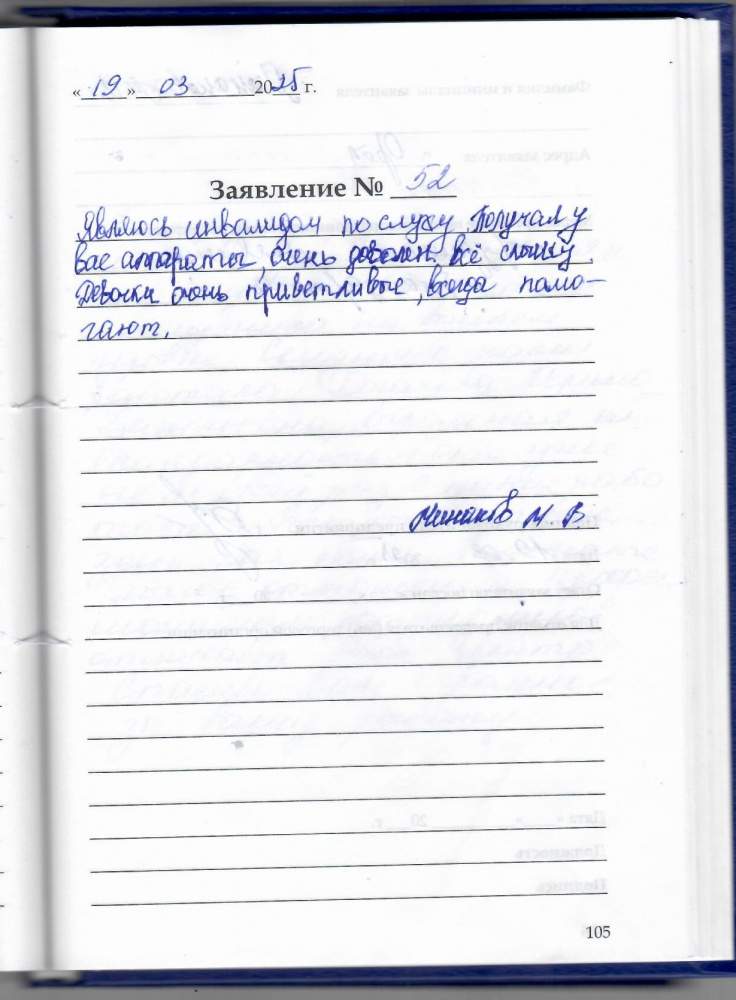 «19» 03 2025 г.
Заявление № 52
Являюсь инвалидом по слуху. Получал у
вас аппараты, очень доволен. всё слышу.
Девочки очень приветливые, всегда помо-
гают.
Минаков М. В.
105